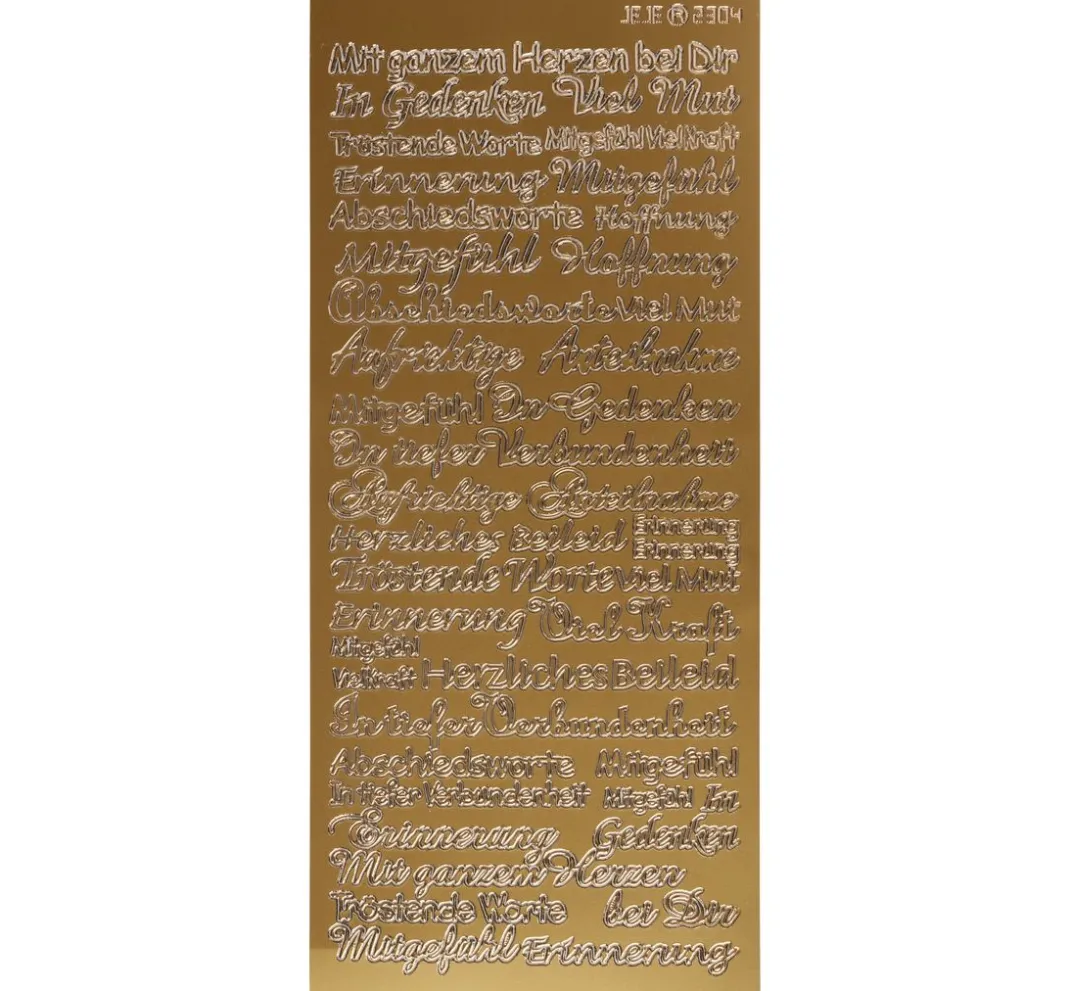 JEJE ® 2304
Mit ganzem Herzen bei Dir
In Gedenken Viel Mut
Tröstende Worte Mitgefühl Viel Kraft
Erinnerung Mitgefühl
Abschiedsworte Hoffnung
Mitgefühl Hoffnung
Abschiedsworte Viel Mut
Aufrichtige Anteilnahme
Mitgefühl In Gedenken
In tiefer Verbundenheit
Aufrichtige Anteilnahme
Herzliches Beileid Erinnerung
Erinnerung
Tröstende Worte Viel Mut
Erinnerung Viel Kraft
Mitgefühl
Viel Kraft Herzliches Beileid
In tiefer Verbundenheit
Abschiedsworte Mitgefühl
In tiefer Verbundenheit Mitgefühl In
Erinnerung Gedenken
Mit ganzem Herzen
Tröstende Worte bei Dir
Mitgefühl Erinnerung